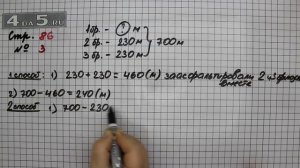 4DA5.RU
Стр. 86
№ 3
1 бр. - ? м
2 бр. - 230 м
3 бр. - 230 м
700 м
1 способ: 1) 230 + 230 = 460 (м) заасфальтировали 2 и 3 бригады вместе
2) 700 - 460 = 240 (м)
2 способ 1) 700 - 230